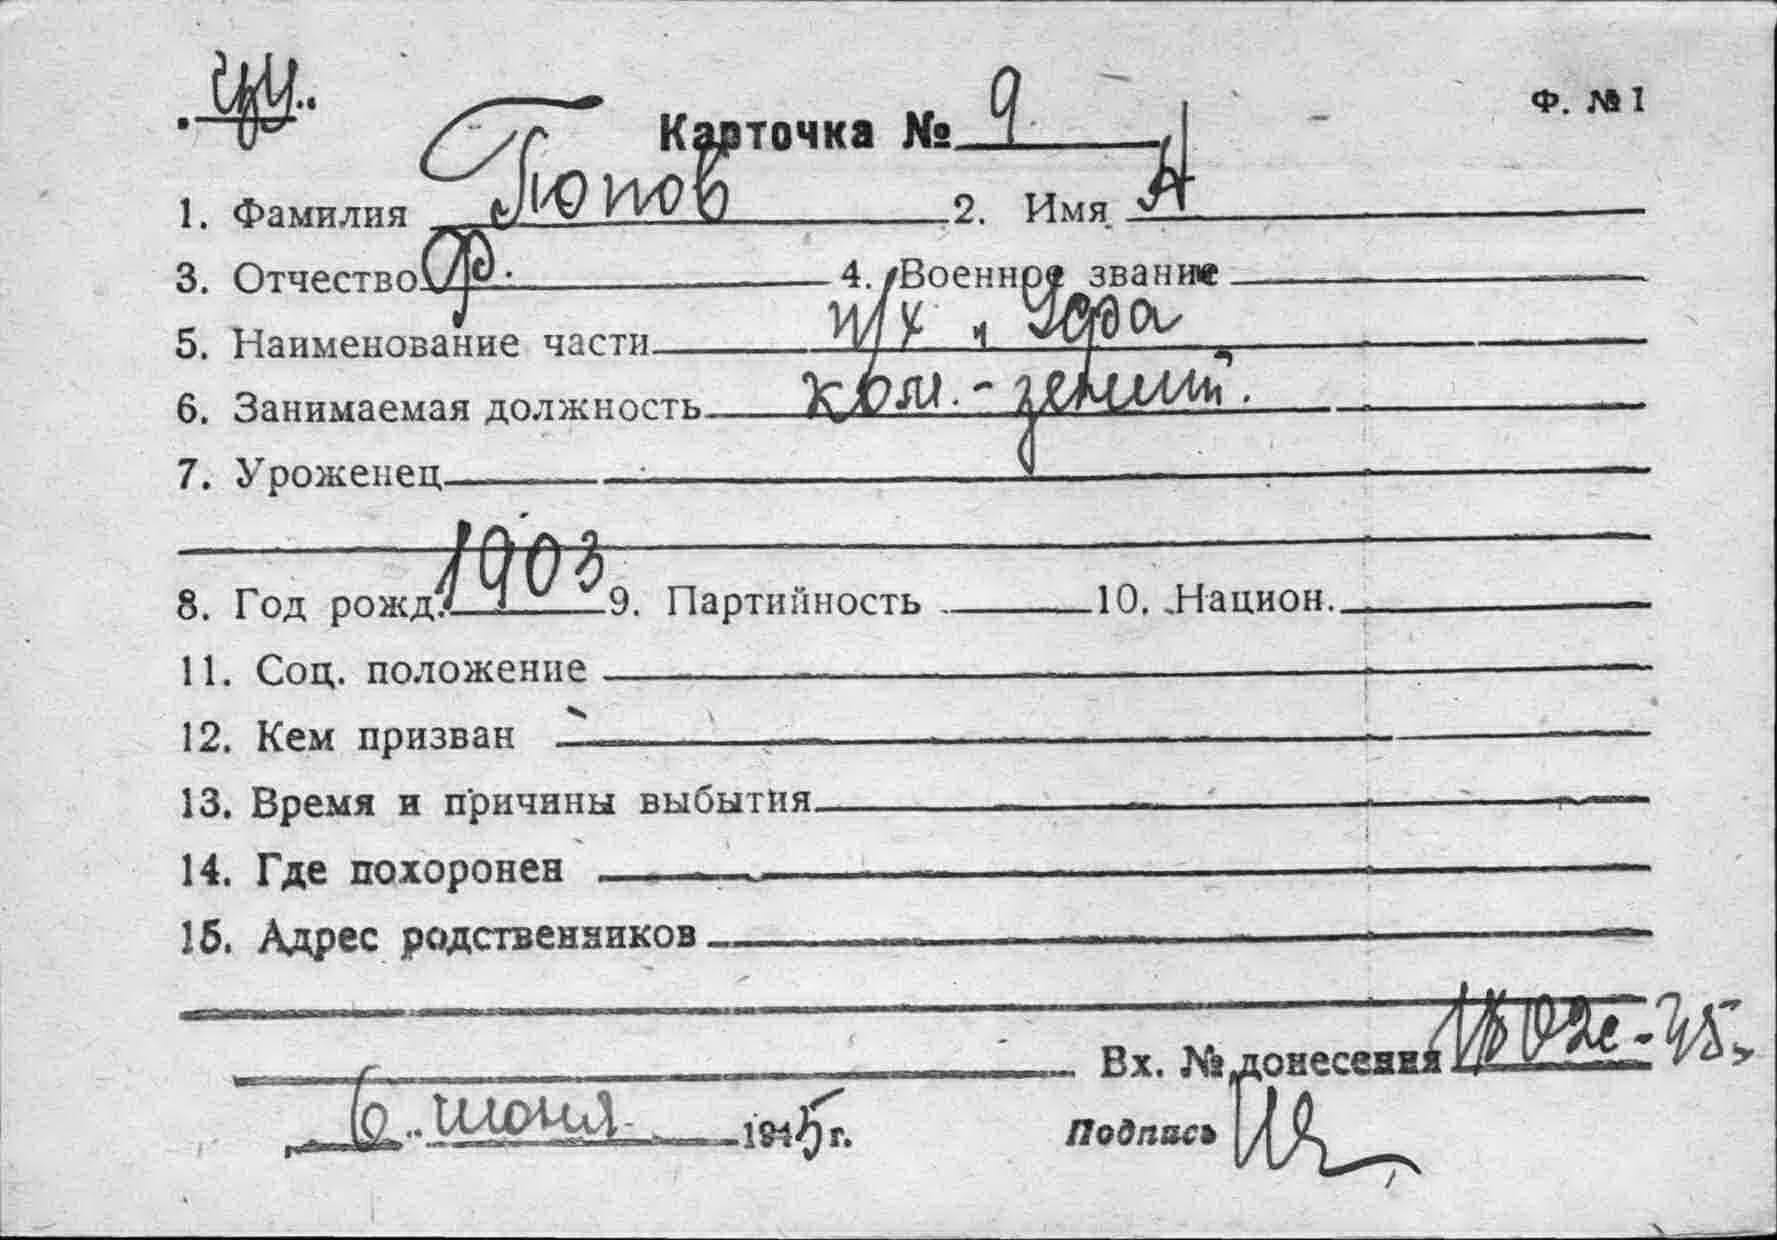 Ф. № 1
Карточка № 9
1. Фамилия Тюпов 2. Имя А
3. Отчество Ф. 4. Военное звание
5. Наименование части п/х „Уфа
6. Занимаемая должность ком.-зенит.
7. Уроженец
8. Год рожд. 1903 9. Партийность 10. Национ.
11. Соц. положение
12. Кем призван
13. Время и причины выбытия
14. Где похоронен
15. Адрес родственников
Вх. № донесения
6 июня 1945 г. Подпись